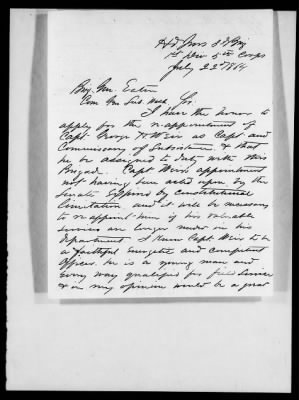 Hd Qrs 3d Brig
1st Div 5th Corps
July 22d 1864
Brig. Gen. Eaton
Com Gen Sub. Wash
Sir
I have the honor to
apply for the re-appointment of
Capt. George H Weir as Capt. and
Commissary of Subsistence & that
he be assigned to duty with this
Brigade. Capt Weir's appointment
not having been acted upon by the
Senate expired by constitutional
limitation and it will be necessary
to re appoint him if his valuable
services are longer needed in his
department. I know Capt Weir to be
a faithful energetic and competent
Officer. he is a young man and
every way qualified for field service
& in my opinion would be a great